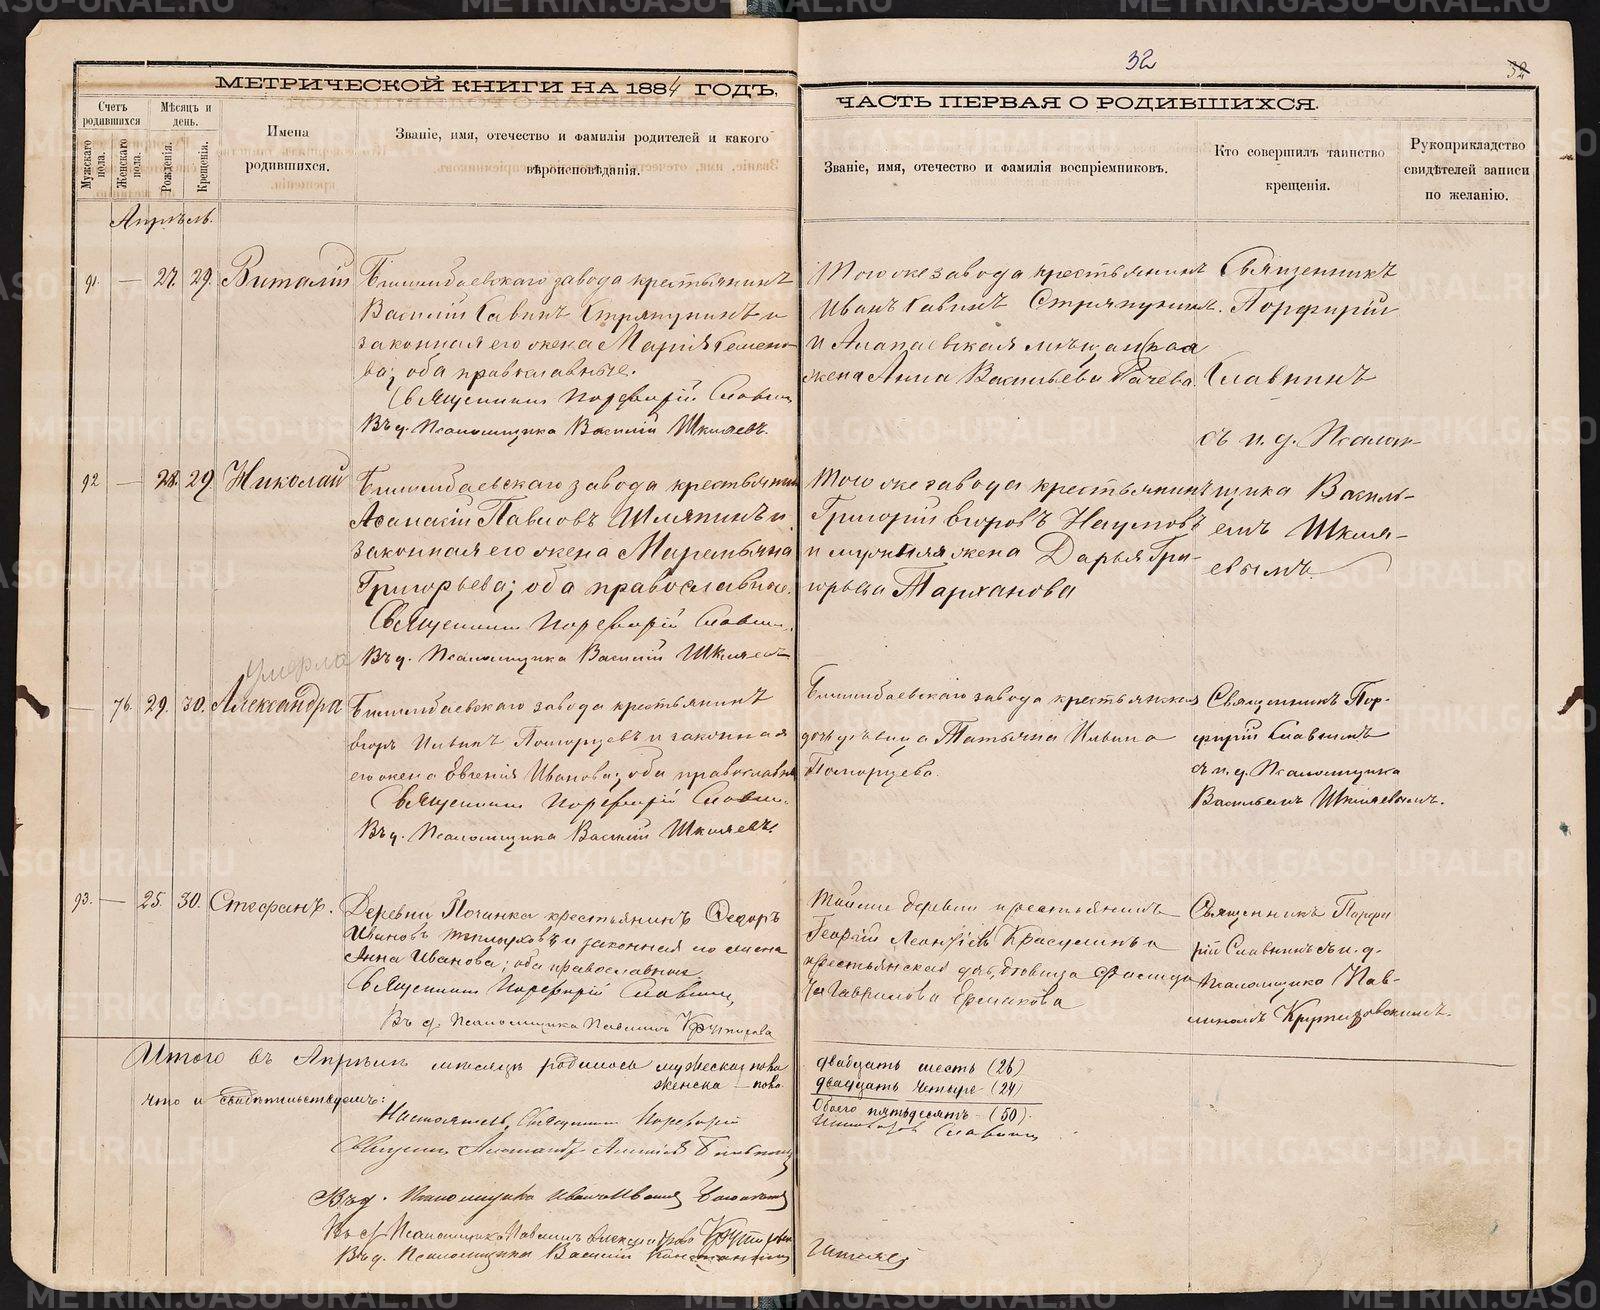 32
32
МЕТРИЧЕСКОЙ КНИГИ НА 1884 ГОДЪ,
ЧАСТЬ ПЕРВАЯ О РОДИВШИХСЯ.
Счетъ родившихся
Мужскаго пола.
Женскаго пола.
Мѣсяцъ и день.
Рожденія.
Крещенія.
Имена
родившихся.
Званіе, имя, отечество и фамилія родителей и какого
вѣроисповѣданія.
Званіе, имя, отечество и фамилія воспріемниковъ.
Кто совершилъ таинство
крещенія.
Рукоприкладство
свидѣтелей записи
по желанію.
Апрѣль.
91. — 27. 29. Виталій
Билимбаевскаго завода крестьянинъ
Василій Саввинъ Стряпунинъ и
законная его жена Марія Семено-
ва; оба православные.
Священникъ Порфирій Славнин
В. д. Псаломщика Василій Шкляевъ.
Того же завода крестьянинъ
Иванъ Саввинъ Стряпунинъ.
и Алапаевская мѣщанская
жена Анна Васильева
Священникъ
Порфирій
Славнинъ
съ и. д. Псалом-
щика Василь-
емъ Шкля-
евымъ.
92 — 28. 29. Николай
Билимбаевскаго завода крестьянинъ
Афанасій Павловъ Шляпинъ и
законная его жена Маремьяна
Григорьева; оба православные.
Священникъ Порфирій Славнин.
В. д. Псаломщика Василій Шкляевъ
Того же завода крестьянинъ
Григорій Егоровъ Наумовъ
и мужняя жена Дарья Гри-
горьева Тарханова
умерла
— 76. 29. 30. Александра
Билимбаевскаго завода крестьянинъ
Егоръ Ильинъ Поморцевъ и законная
его жена Евгенія Иванова; оба православные
Священникъ Порфирій Славнин.
В. д. Псаломщика Василій Шкляевъ.
Билимбаевскаго завода крестьянская
дочь дѣвица Татьяна Ильина
Поморцева.
Священникъ Пор-
фирій Славнинъ
съ и. д. Псаломщика
Васильемъ Шкляевымъ.
93. — 25. 30. Стефанъ.
Деревни Починка крестьянинъ Ѳедоръ
Ивановъ и законная его жена
Анна Иванова; оба православные
Священникъ Порфирій Славнин,
В. д. Псаломщика Павлинъ
Той же деревни крестьянинъ
Георгій Леонтіевъ Красулинъ и
крестьянская дочь, дѣвица
Гаврилова Ермакова
Священникъ Порфи-
рій Славнинъ съ и. д.
Псаломщика Пав-
линомъ Крутиховскимъ.
Итого въ Апрѣлѣ мѣсяцѣ родилось мужеска пола двадцать шесть (26)
женска — пола двадцать четыре (24)
Обоего пятьдесятъ — (50).
что и свидѣтельствуемъ:
Настоятель, Священникъ Порфирій Славнин
Священникъ Александръ
В. д. Псаломщика
В. д. Псаломщика Павлинъ Александровъ
В. д. Псаломщика Василій Константинов Шкляев
METRIKI.GASO-URAL.RU